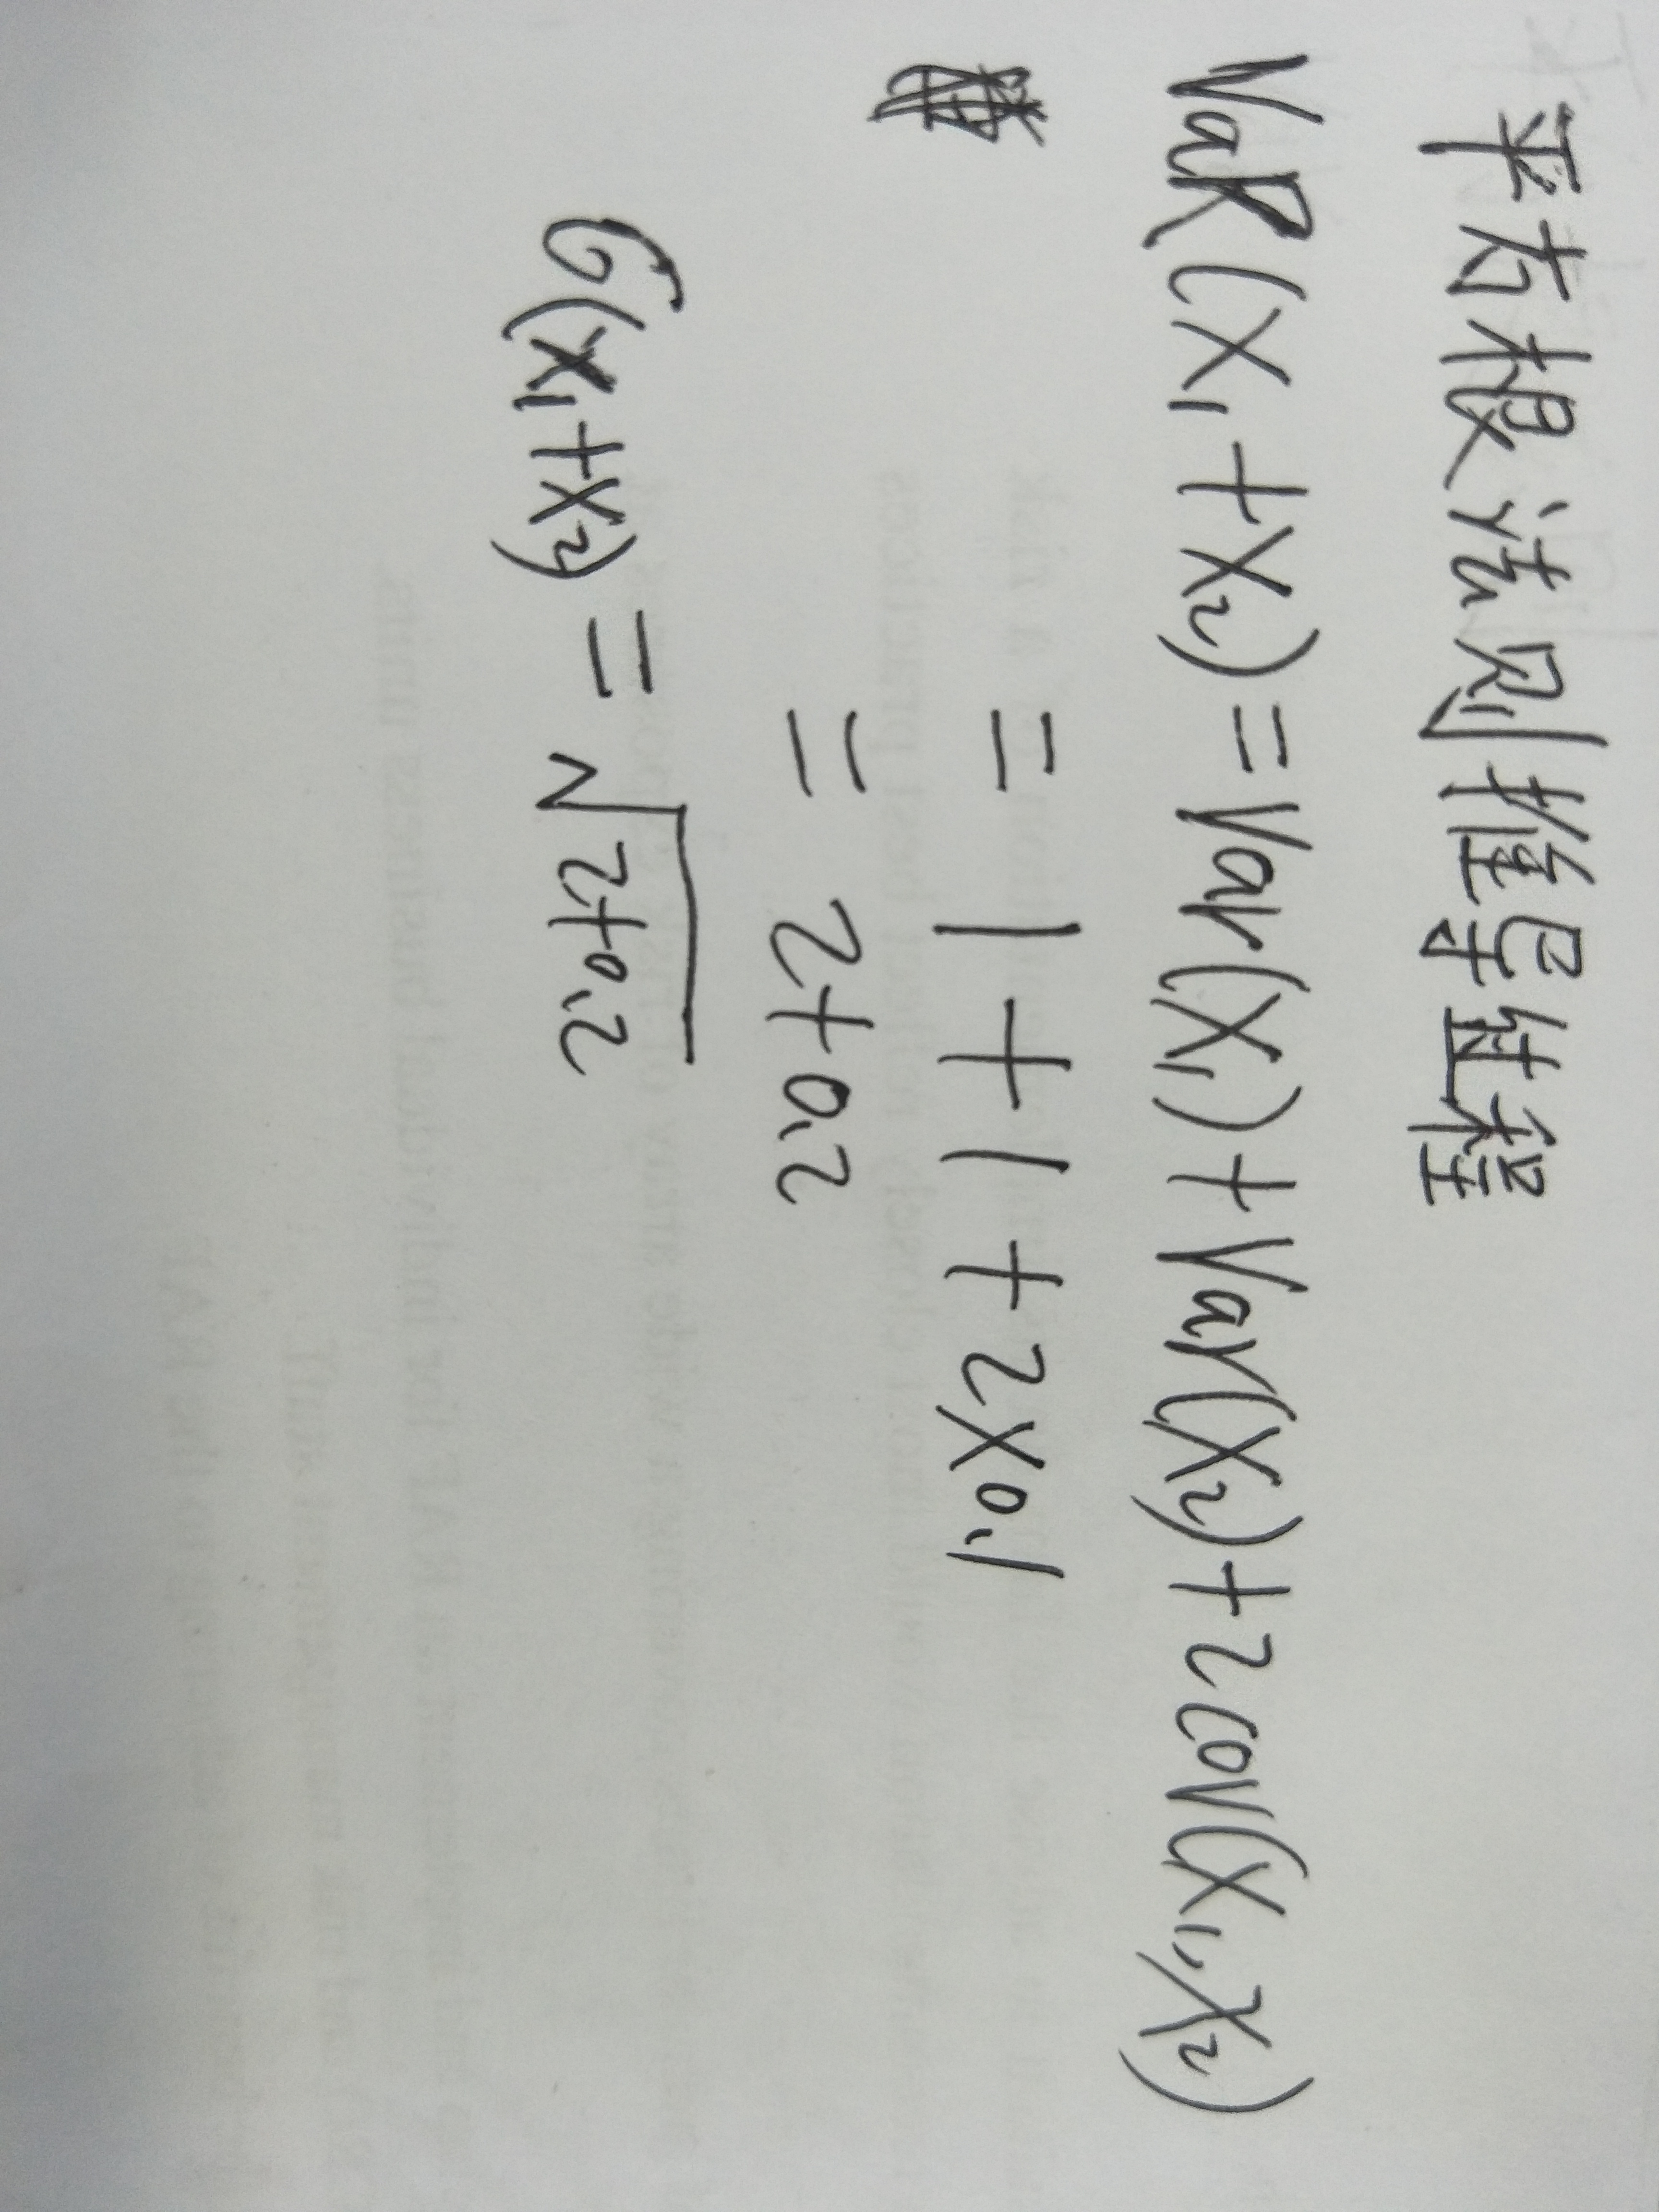 平方根法则推导过程
VaR(X₁+X₂)=Var(X₁)+Var(X₂)+2cov(X₁,X₂)
= 1+1+2×0.1
= 2+0.2
σ(X₁+X₂) = √2+0.2